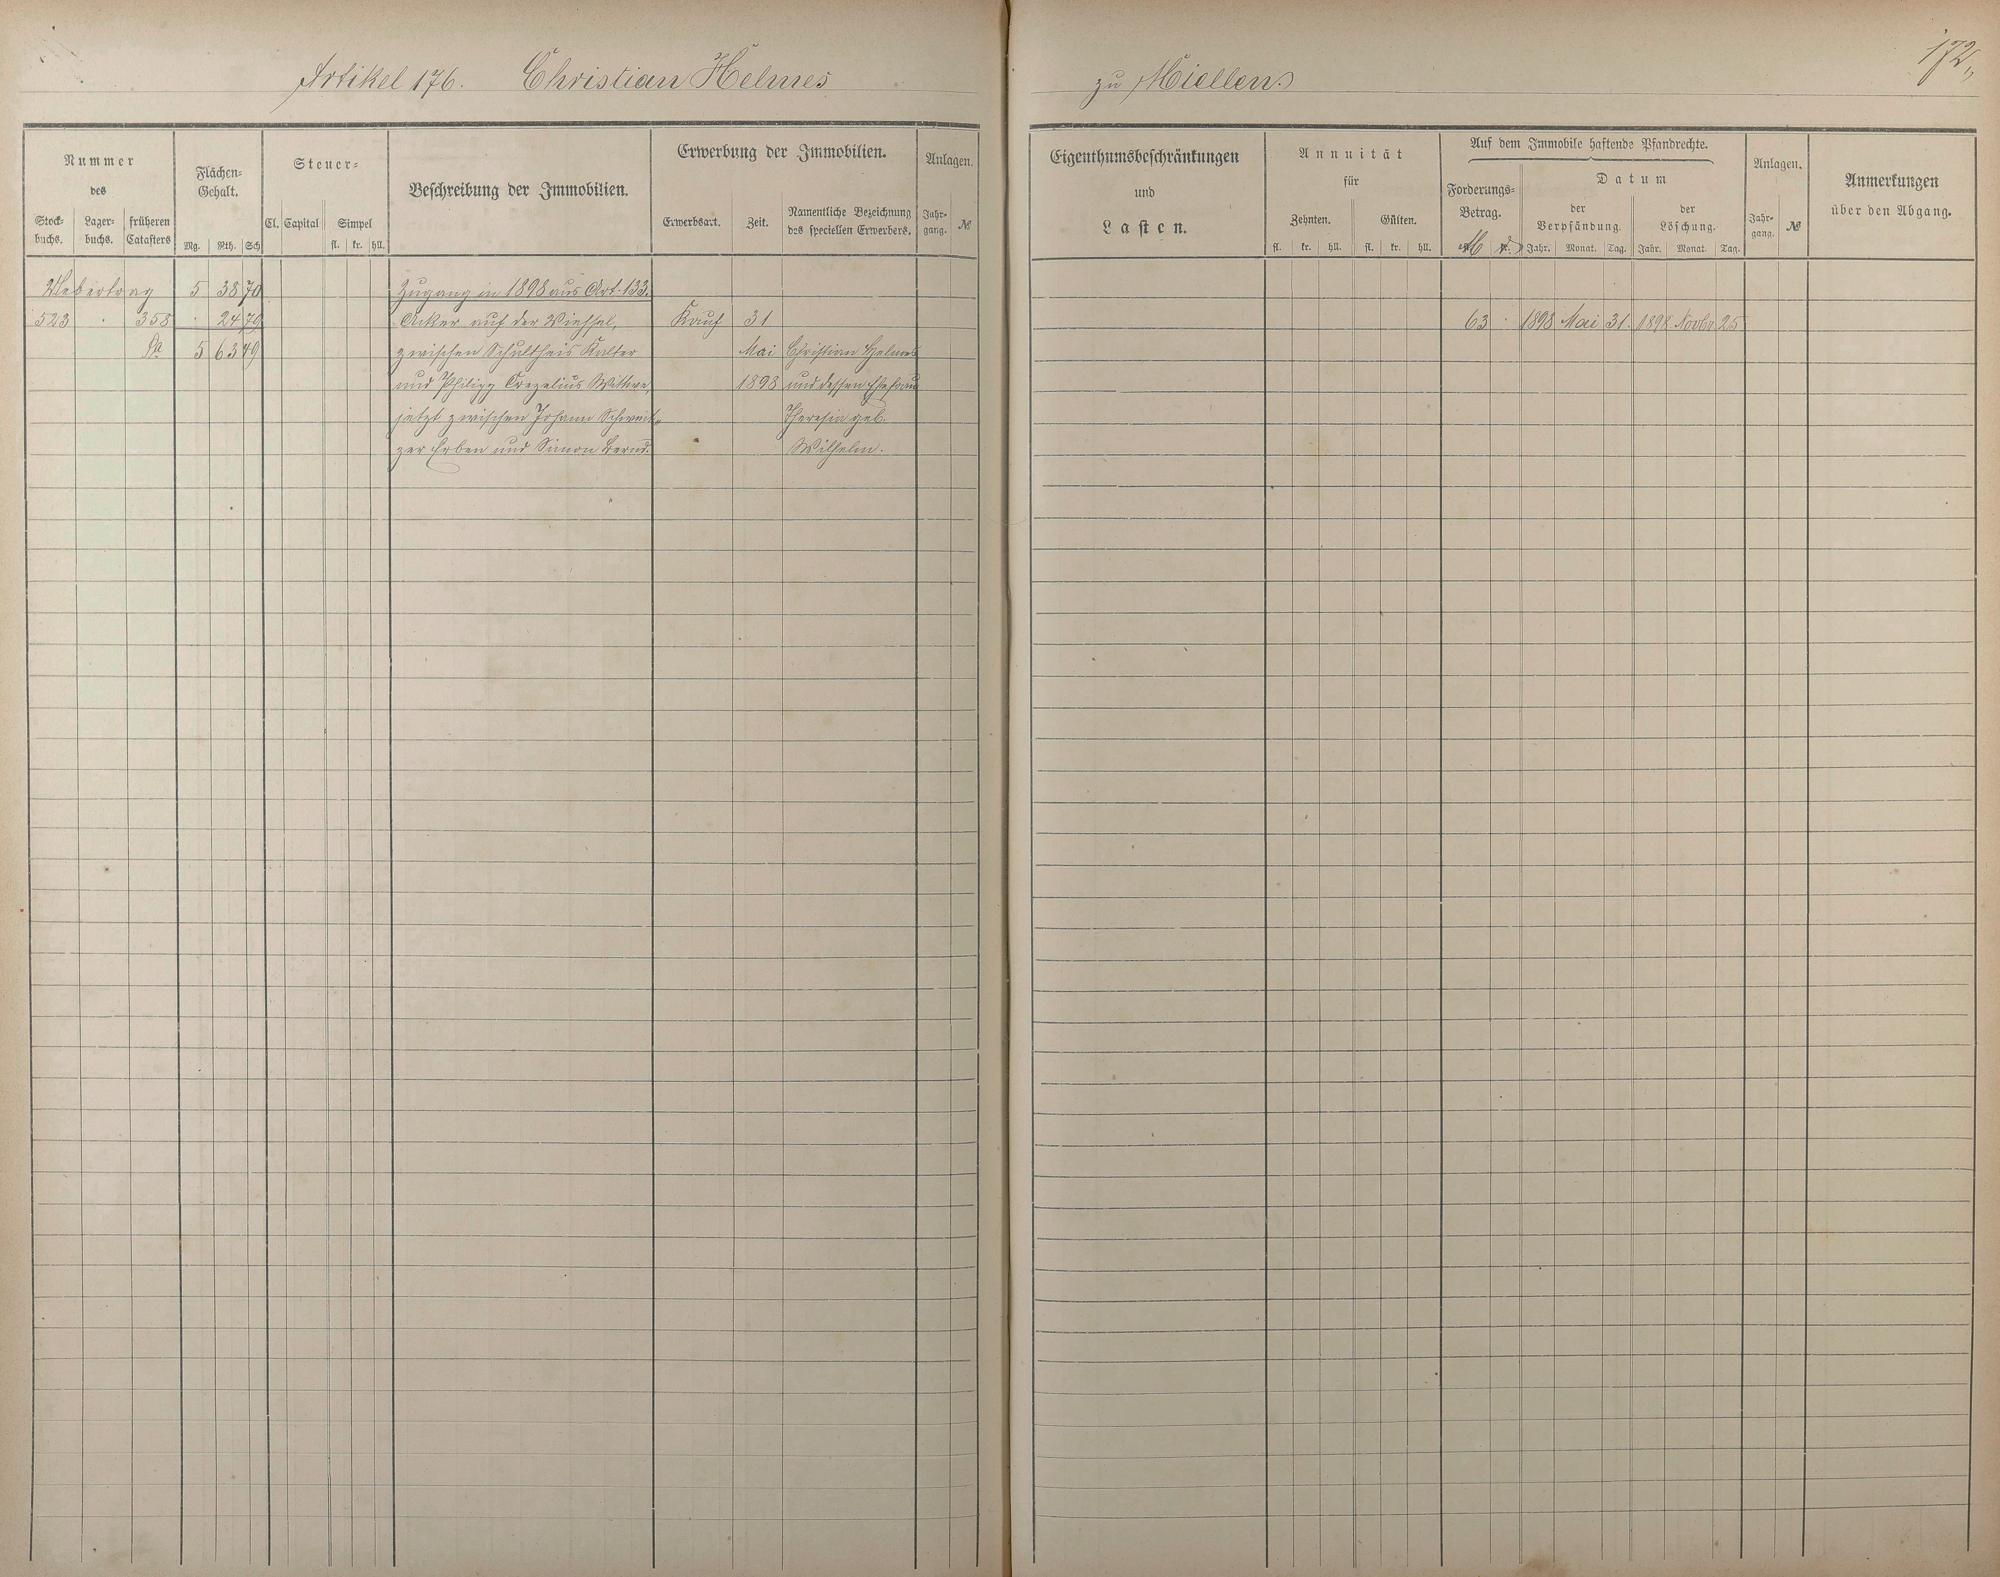 172
Artikel 176. Christian Helmes zu Miellen
Nummer
des
Stock-
buchs.
Lager-
buchs.
früheren
Catasters
Flächen-
Gehalt.
Mg. Rth. Sch
Steuer-
Cl. Capital Simpel
fl. kr. hll.
Beschreibung der Immobilien.
Erwerbung der Immobilien.
Erwerbsart. Zeit.
Namentliche Bezeichnung
des speciellen Erwerbers.
Anlagen.
Jahr-
gang. №
Eigenthumsbeschränkungen
und
Lasten.
Annuität
für
Zehnten. Gülten.
fl. kr. hll. fl. kr. hll.
Auf dem Immobile haftende Pfandrechte.
Forderungs-
Betrag.
Datum
der
Verpfändung.
der
Löschung.
Jahr. Monat. Tag. Jahr. Monat. Tag.
Anlagen.
Jahr-
gang. №
Anmerkungen
über den Abgang.
Uebertrag 5 38 70 Zugang in 1898 aus Art. 133.
523 . 358 . 24 79 Acker auf der Kauf 31 63 . 1898 Mai 31. 1898 Novbr. 25
Sa 5 63 49 zwischen Schultheis Kalter Mai Christian Helmes
und Philipp Crezelius Wittwe, 1898 und dessen Ehefrau
jetzt zwischen Johann Schweit- Theresia geb.
zer Erben und Simon Bernd. Wilhelm.